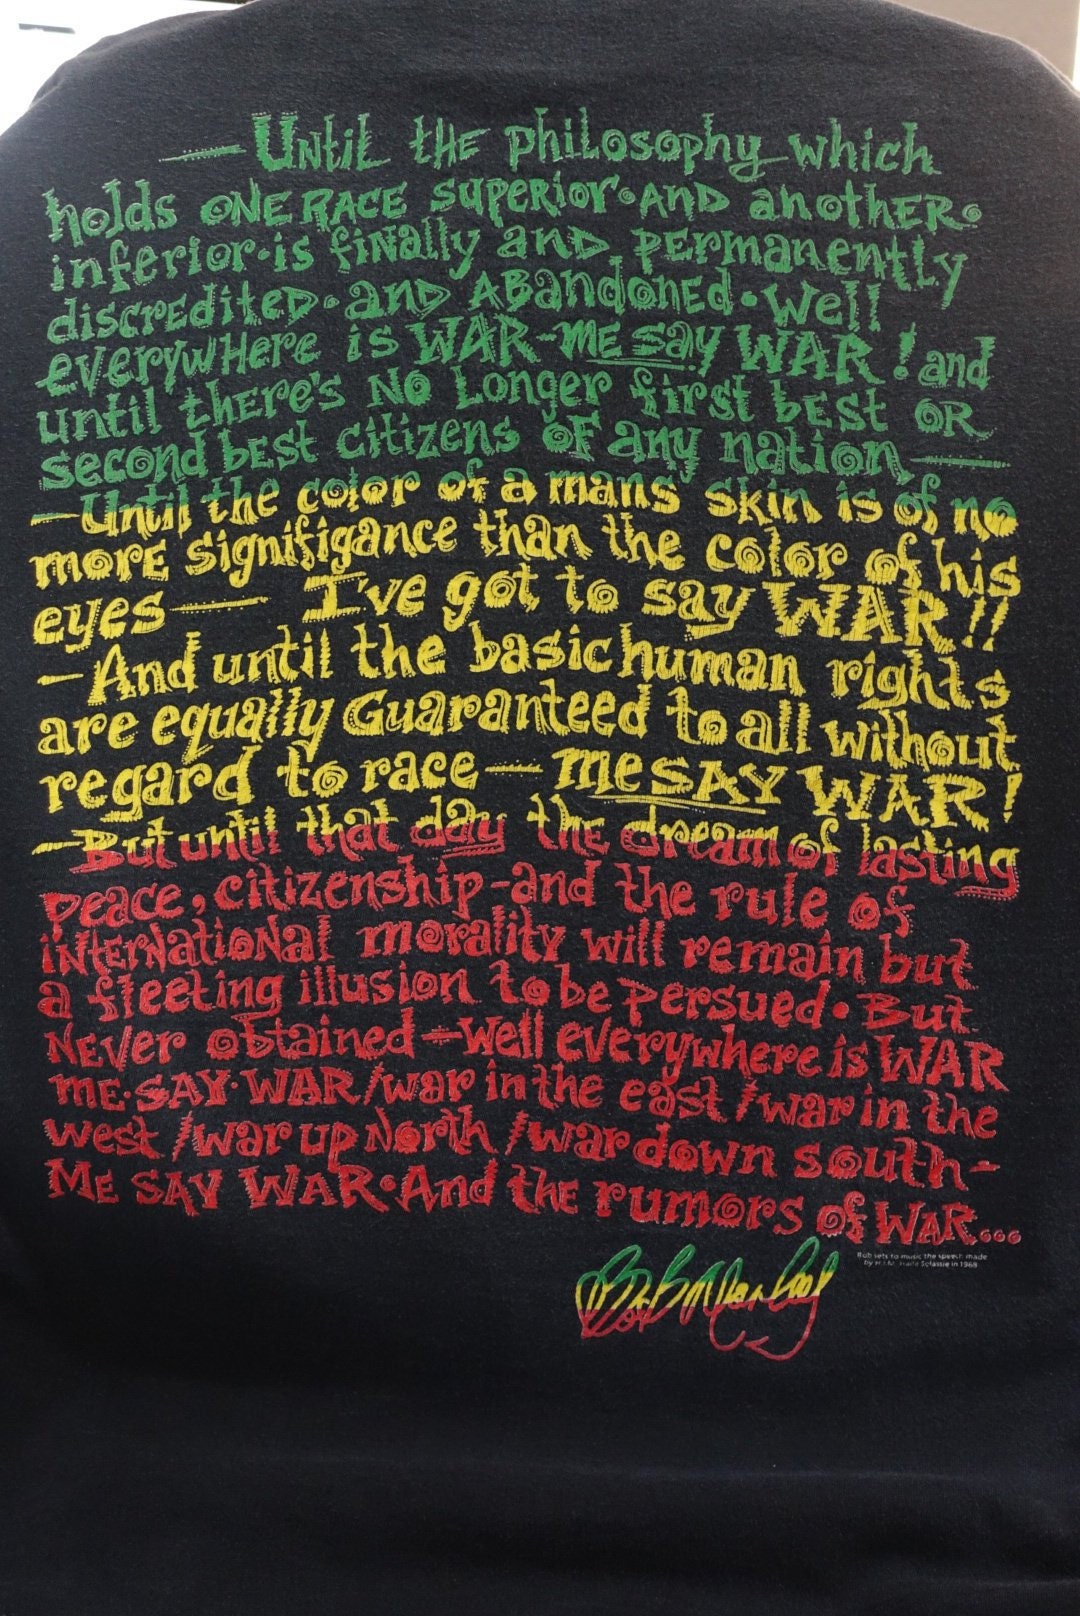 —Until the philosophy which
holds ONE RACE superior•AND another•
inferior•is finally and permanently
discredited•and Abandoned•Well
everywhere is WAR-Me say WAR! and
until there's No Longer first best OR
second best citizens of any nation—
—Until the color of a mans skin is of no
more signifigance than the color of his
eyes— I've got to say WAR!!
—And until the basic human rights
are equally Guaranteed to all without
regard to race—me SAY WAR!
—But until that day the dream of lasting
peace, citizenship-and the rule of
international morality will remain but
a fleeting illusion to be persued•But
Never obtained—well everywhere is WAR
me•SAY•WAR/war in the east/war in the
west/war up North/war down south-
Me SAY WAR•And the rumors of WAR...
Bob sets to music the speech made
by H.I.M. Haile Selassie in 1968
Bob Marley